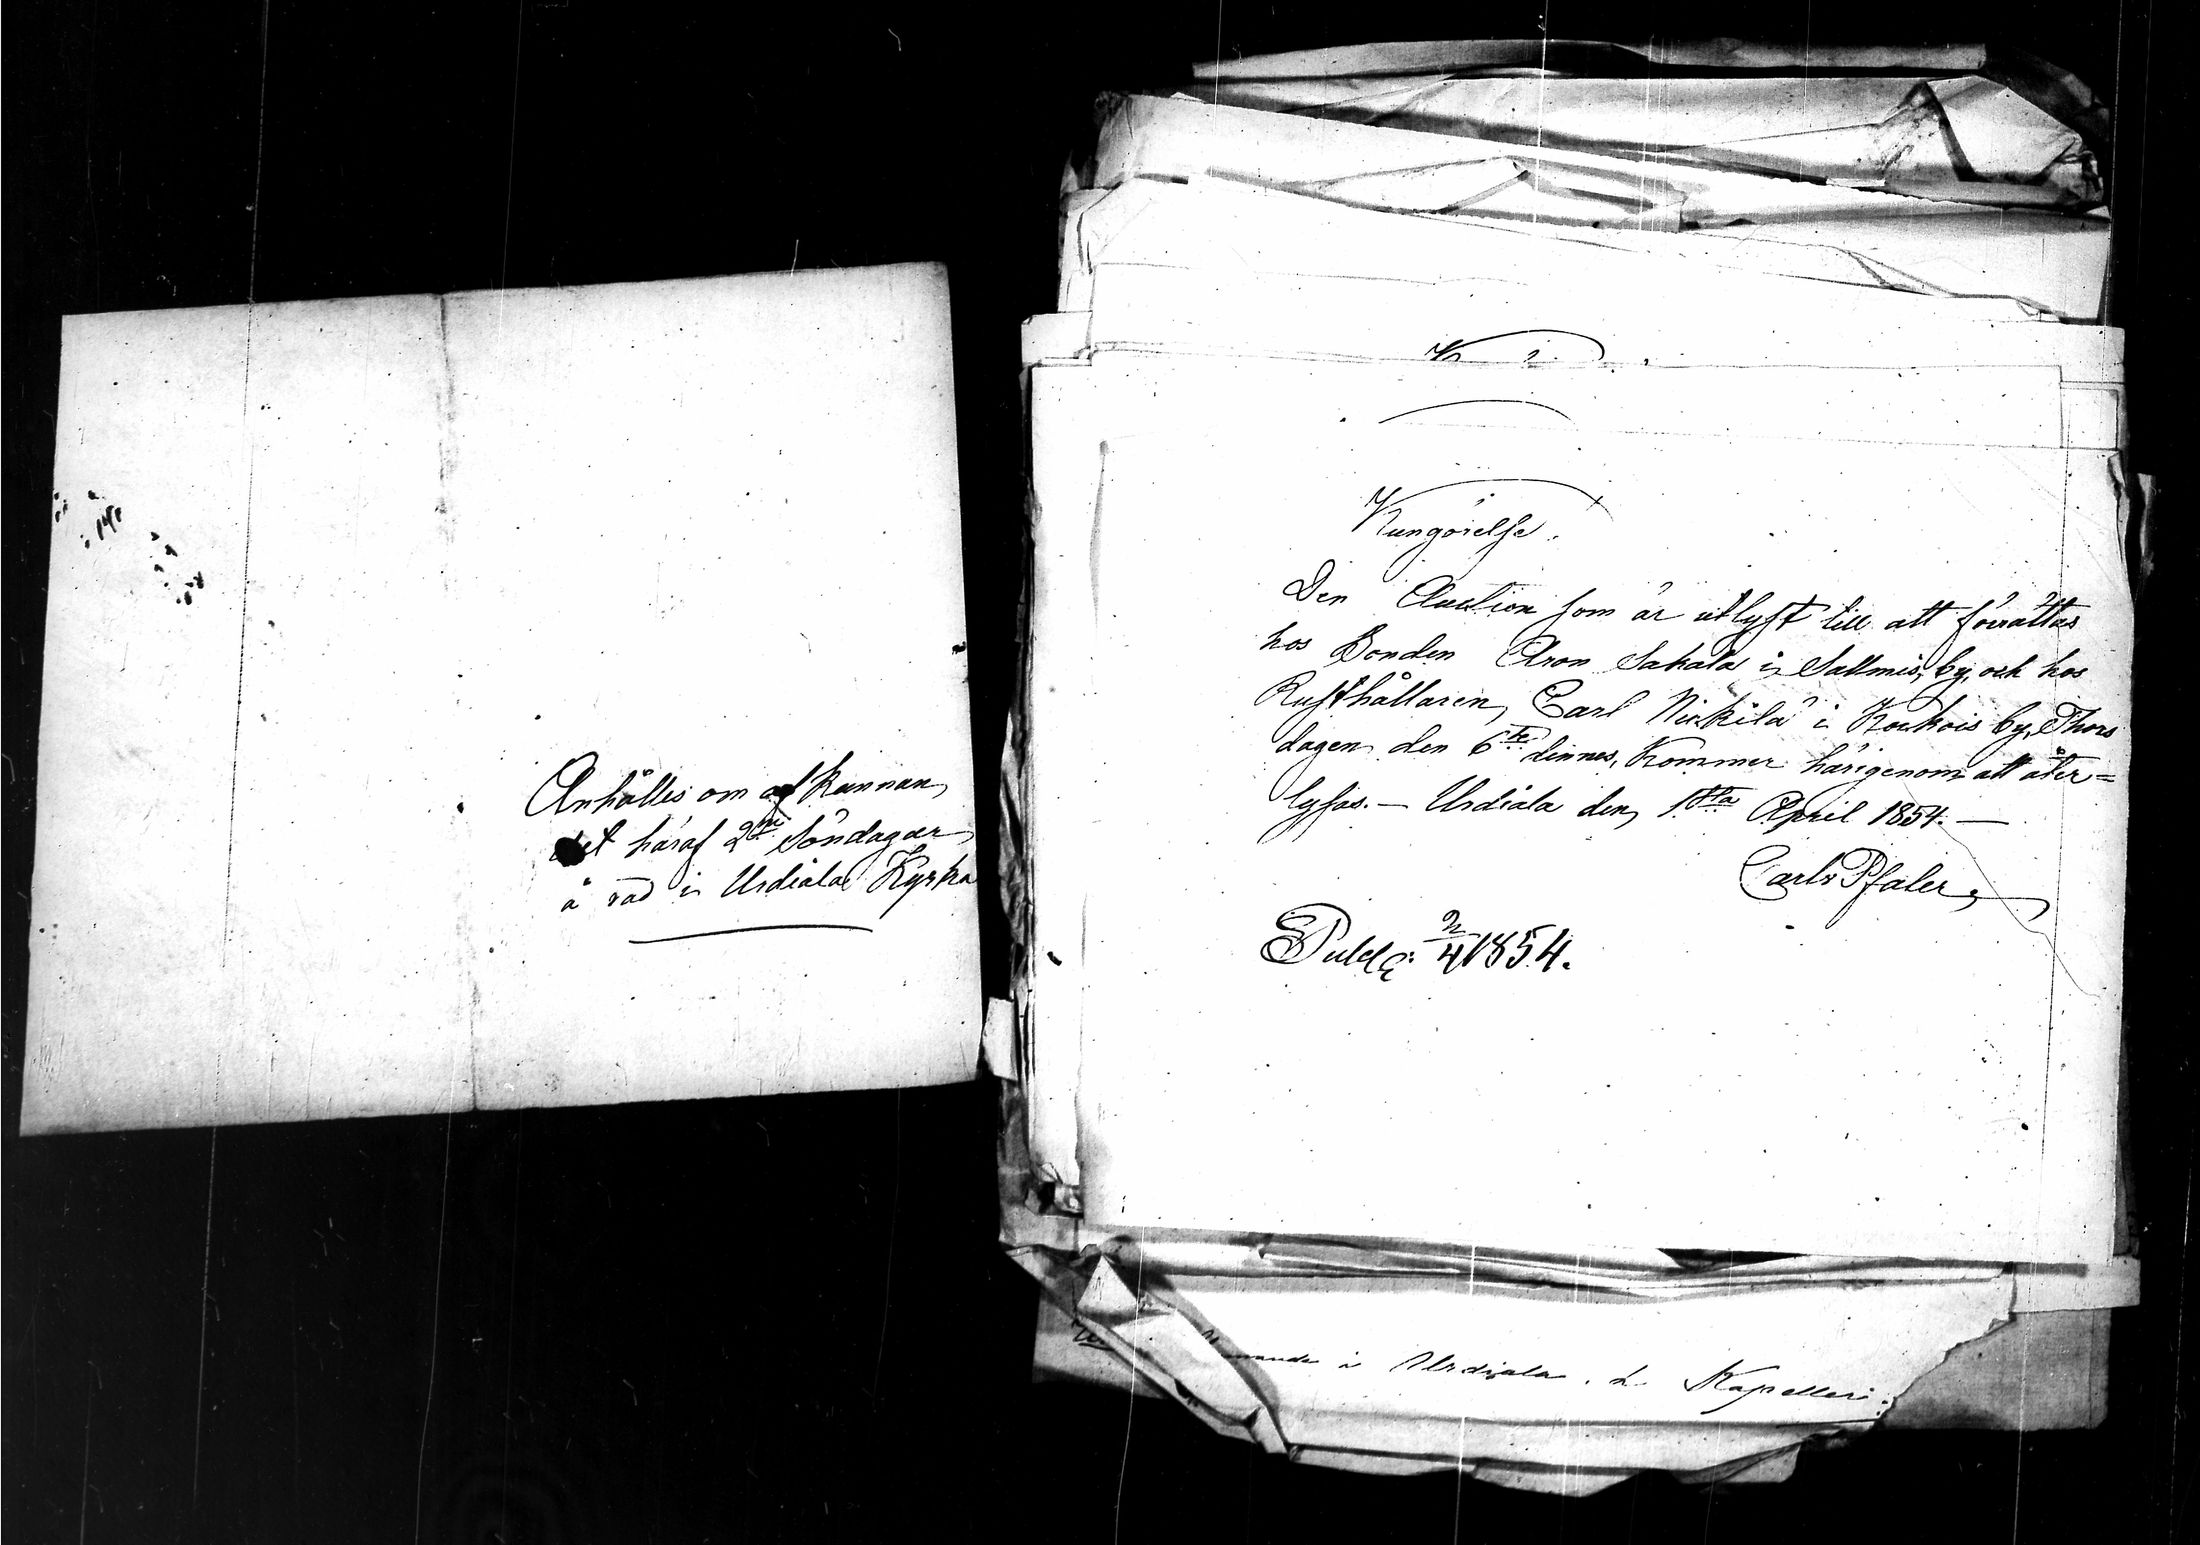 Anhålles om afkunnan
det häraf 2ne Söndagar
å rad i Urdiala Kyrka
Kungörelse.
Den Auction som är utlyst till att förrättas
hos Bonden Aron Sakala i Salmis by, och hos
Rusthållaren, Carl Nickilä i Kockois by, Thors
dagen den 6te dennes, Kommer härigenom att åter=
lysas. — Urdiala den 1sta April 1854. —
Carl v Pfaler
Publ: 2/4 1854.
i Urdiala. Kapelleri.